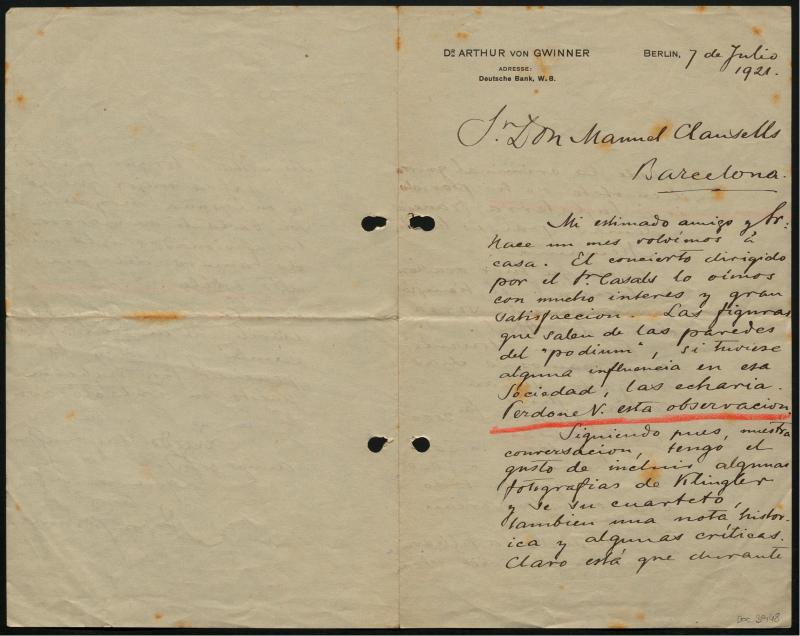 Dr ARTHUR VON GWINNER
ADRESSE:
Deutsche Bank, W. 8.
BERLIN, 7 de Julio
1921.
Sr. Don Manuel Clausells
Barcelona.
Mi estimado amigo y Sr:
Hace un mes volvimos á
casa. El concierto dirigido
por el Sr. Casals lo oimos
con mucho interes y gran
satisfaccion. Las figuras
que salen de las paredes
del "podium", si tuviese
alguna influencia en esa
Sociedad, las echaria.
Perdone V. esta observacion.
Siguiendo pues, nuestra
conversacion, tengo el
gusto de incluir algunas
fotografias de Klingler
y se su cuarteto,
tambien una nota histor-
ica y algunas críticas.
Claro está que durante
Doc 39.48